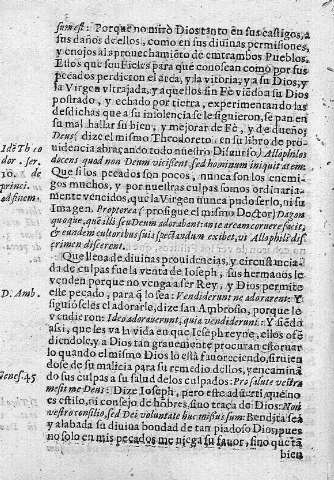 sum est: Porque no mirò Dios tanto en sus castigos, a
sus daños de ellos, como en sus diuinas permissiones,
y enojos al aprouechamiẽto de emtrambos Pueblos.
Ellos que son Fieles para que conoscan como por sus
pecados perdieron el arca, y la vitoria; y a su Dios, y
la Virgen vltrajada, y aquellos sin Fè viẽdo a su Dios
postrado, y echado por tierra, experimentando las
desdichas que a su insolencia se le siguieron, se pan en
su mal hallar su bien, y mejorar de Fè, y de dueño:
Deus (dize el mismo Theodoreto, en su libro de pro-
uidencia abraçando todo nuestro Discurso) Allophilos
docens quod non Deum vicissent, sed hominum iniquitatem.
Que si los pecados son pocos, nunca son los enemi-
gos muchos, y por nuestras culpas somos ordinaria-
mente vencidos, que la Virgen nunca pudo serlo, ni su
Imagen. Propterea (prosigue el mismo Doctor) Dagon
quoque, quẽ illi seu Deum adorabant ante arcam corruere facit,
& eundem cultoribus suis spectandum exibet, vt Allophili dis
crimen differrent.
Que llena de diuinas prouidencias, y circunstancia-
da de culpas fue la venta de Ioseph, sus hermanos le
venden porque no venga a ser Rey, y Dios permite
elle pecado, para q̃ lo sea: Vendiderunt ne adorarent: Y
siguiose les el adorarle, dize san Ambrosio, porque lo
vendieron: Ideo adorauerunt, quia vendiderunt: Y siẽdo
assi, que les va la vida en que Ioseph reyne, ellos ofẽ
diendole, y a Dios tan grauemente procuran estoruar
lo quando el mismo Dios lo està fauoreciendo, siruien
dose de su malicia para su remedio dellos, y encaminã
do sus culpas a su salud de los culpados: Pro salute vestra
mesit me Deus: Dize Ioseph, pero este aduertì que no
es estilo, ni consejo de hõbres, sino traça de Dios: Non
vestro consilio, sed Dei voluntate huc missus sum: Bendita sea
y alabada su diuina bondad de tan piadoso Dios pues
no solo en mis pecados me niega su fauor, sino que tã
bien
Idẽ Th̃o
dor. ser.
10. de
princi.
ad finem
D. Amb.
Genes. 45